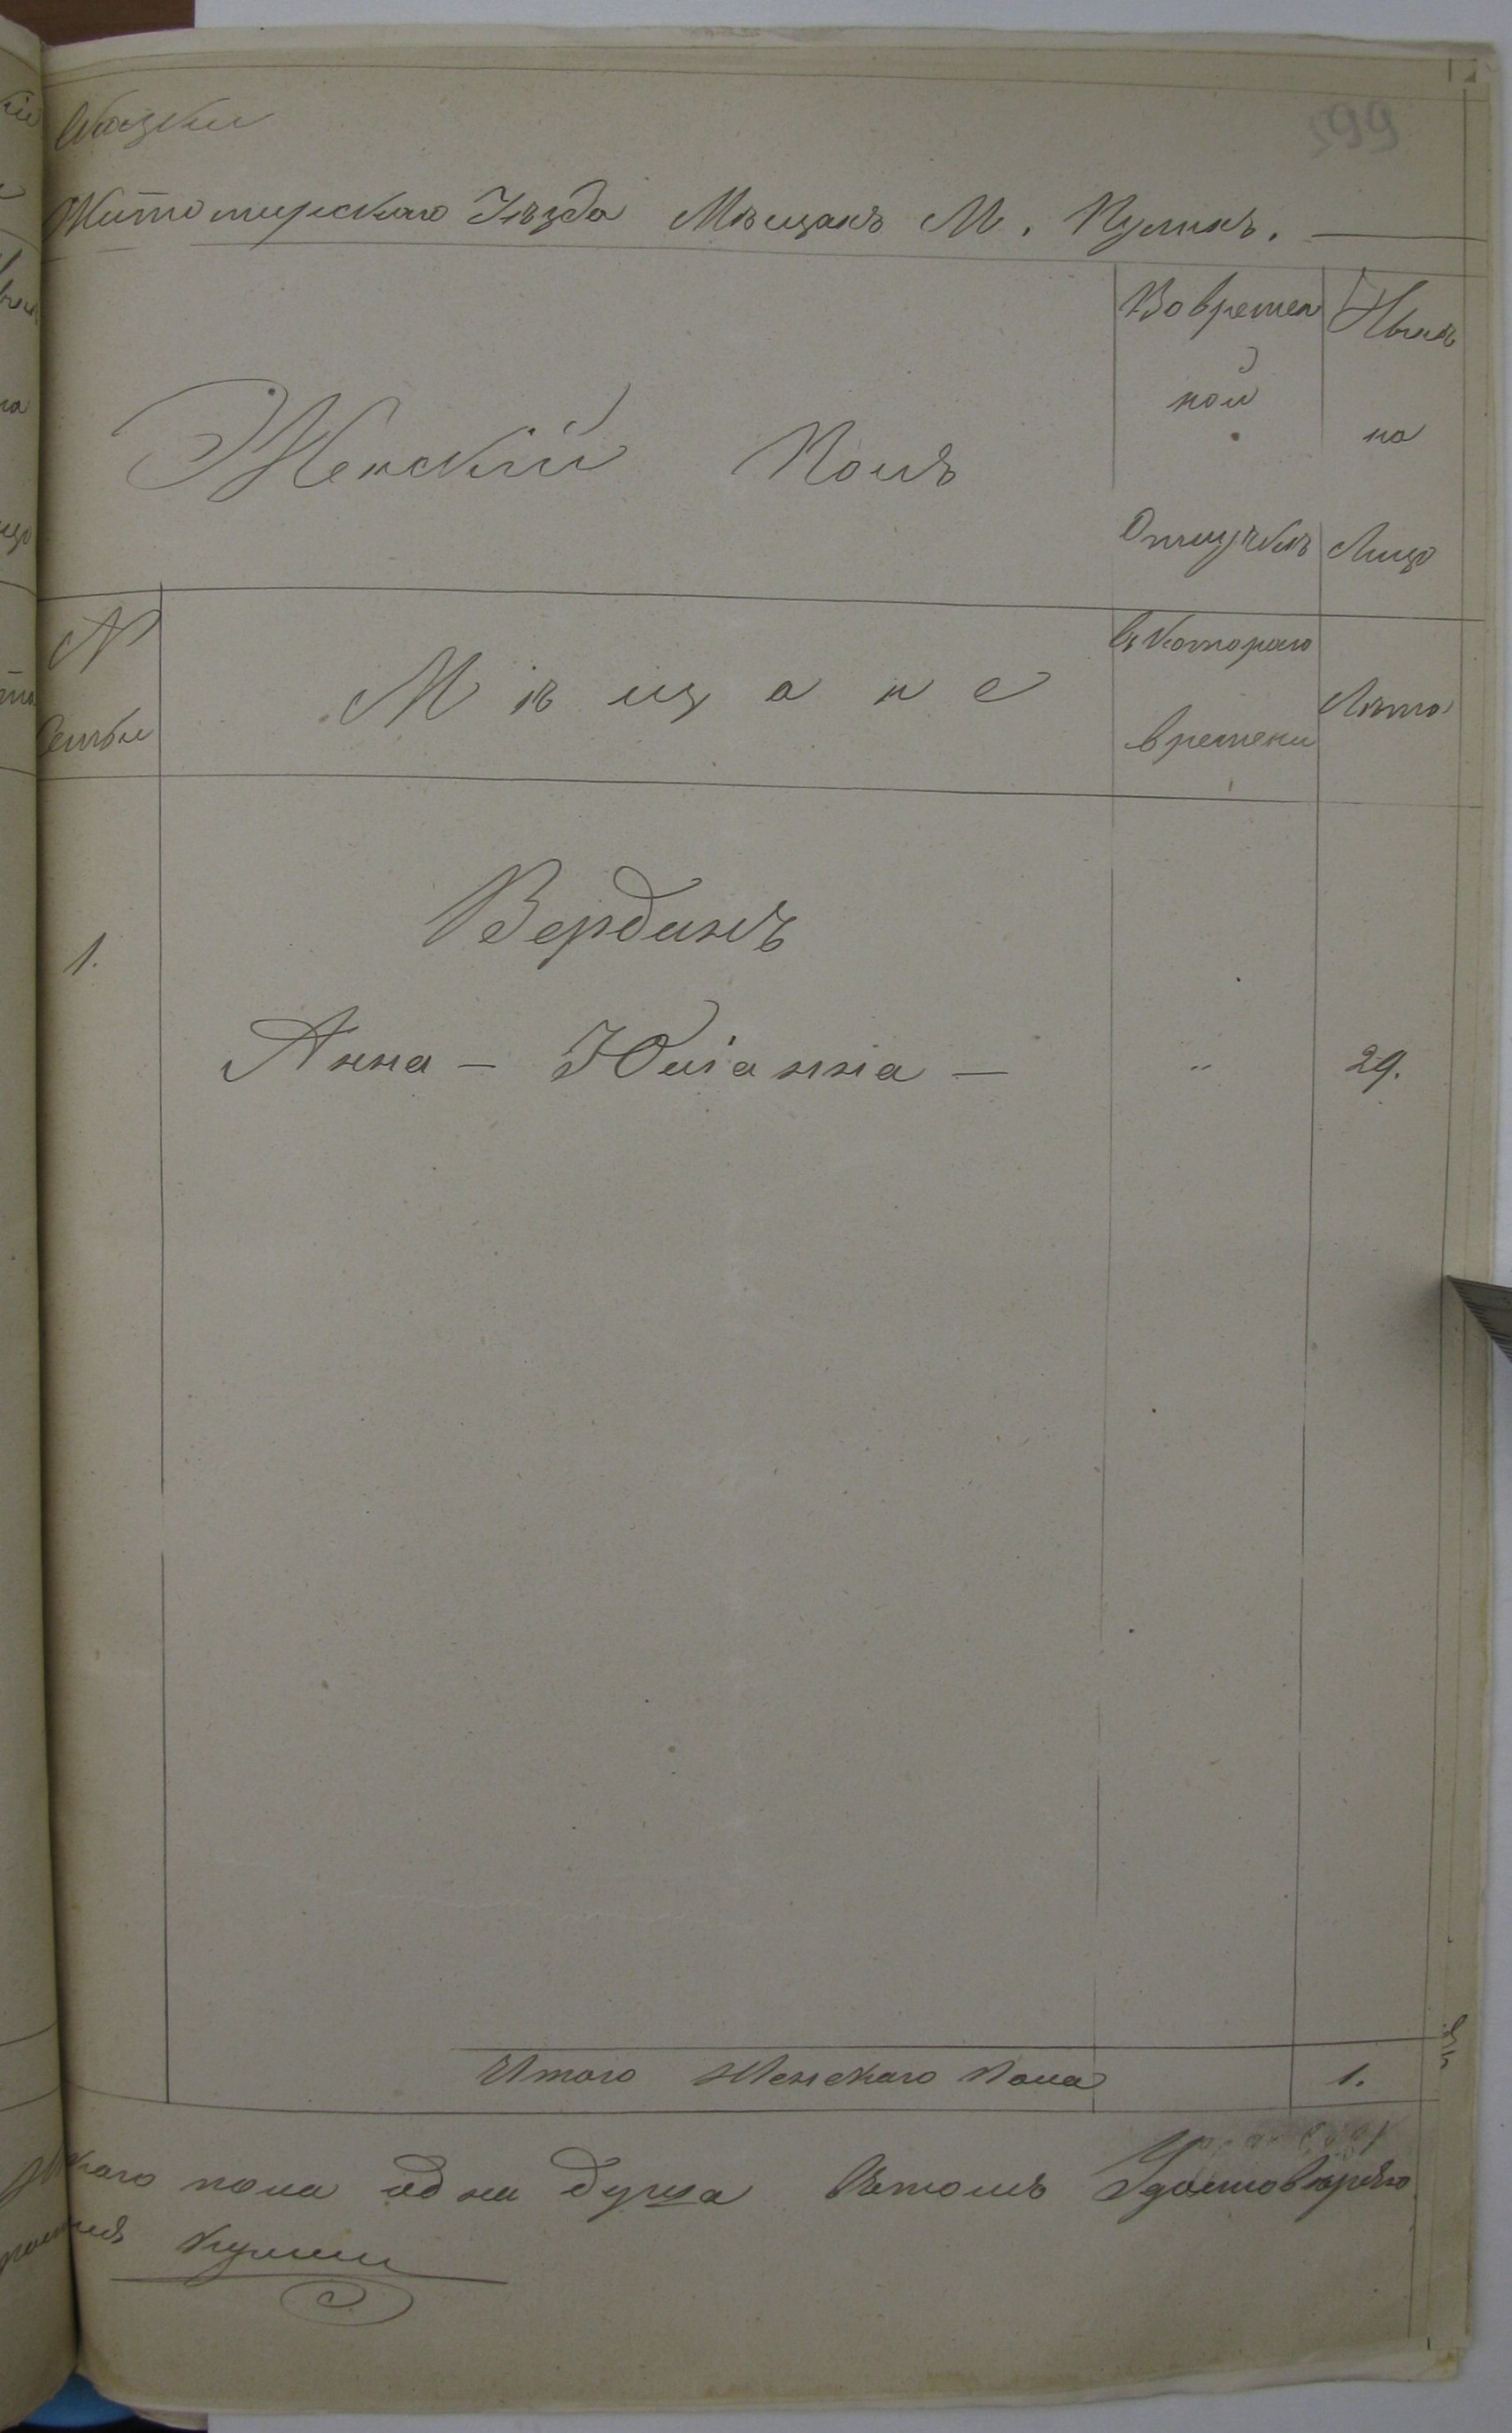 599
Сказки
Житомирскаго Уѣзда Мѣщанъ М. Пулинъ.
Женскій Полъ
Во времен
ной
Отлучкѣ
Нынѣ
на
Лицо
№
Семьи
Мѣщане
Съ котораго
времени
Лѣта
1.
Вердинъ
Анна – Юліанна – " 29.
Итого Женскаго Пола 1.
пола одна душа Вѣтомъ Удостовѣряю